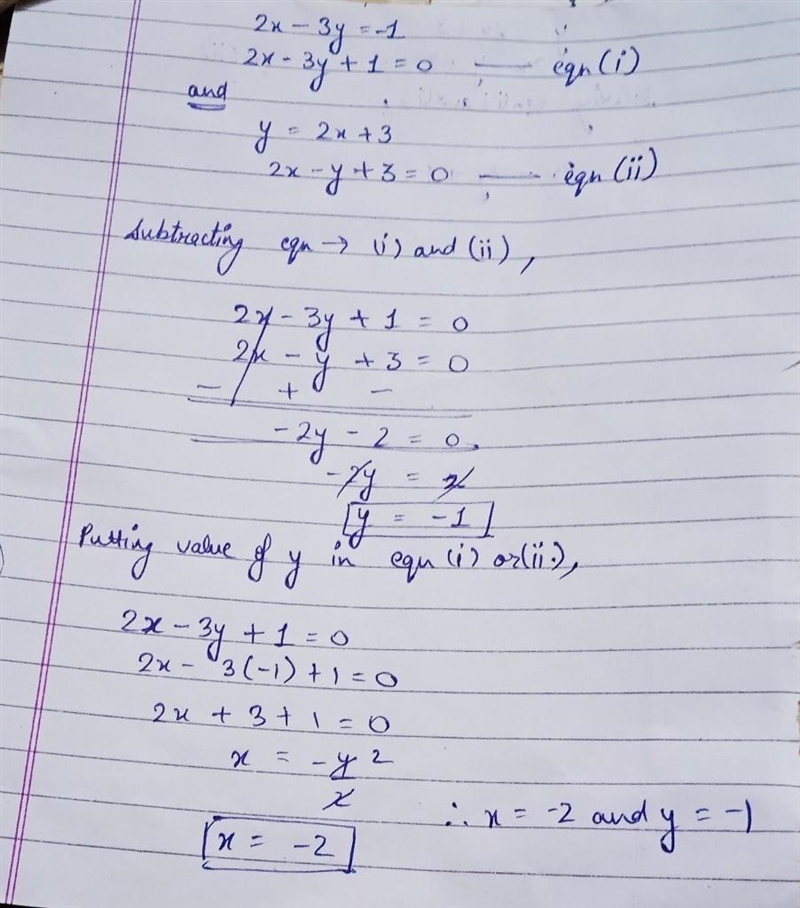 2x - 3y = -1
2x - 3y + 1 = 0 — eqn (i)
and
y = 2x + 3
2x - y + 3 = 0 — eqn (ii)
Subtracting eqn → (i) and (ii),
2x - 3y + 1 = 0
2x - y + 3 = 0
- + -
-2y - 2 = 0
-2y = 2
y = -1
Putting value of y in eqn (i) or (ii),
2x - 3y + 1 = 0
2x - 3(-1) + 1 = 0
2x + 3 + 1 = 0
x = -4 2
2
x = -2
∴ x = -2 and y = -1